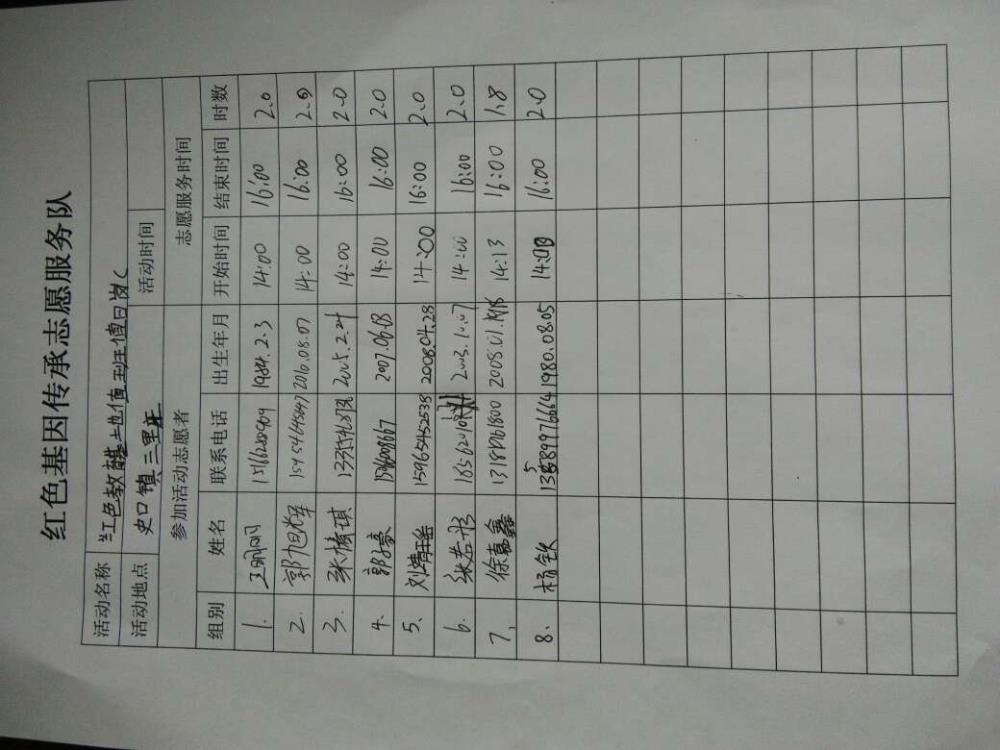 红色基因传承志愿服务队
活动名称 红色教育基地值班值日岗
活动地点 史口镇三里庄 活动时间
参加活动志愿者 志愿服务时间
组别 姓名 联系电话 出生年月 开始时间 结束时间 时数
1. 1984.2.3 14:00 16:00 2.0
2. 郭旭军 2016.08.07 14:00 16:00 2.0
3. 张楠琪 14:00 16:00 2.0
4. 郭子豪 14:00 16:00 2.0
5、 刘靖岳 15965452538 2008.04.28 14:00 16:00 2.0
6. 张若彤 2003.10.07 14:00 16:00 2.0
7、 徐嘉鑫 14:13 16:00 1.8
8. 杨钦 1980.08.05 14:00 16:00 2.0